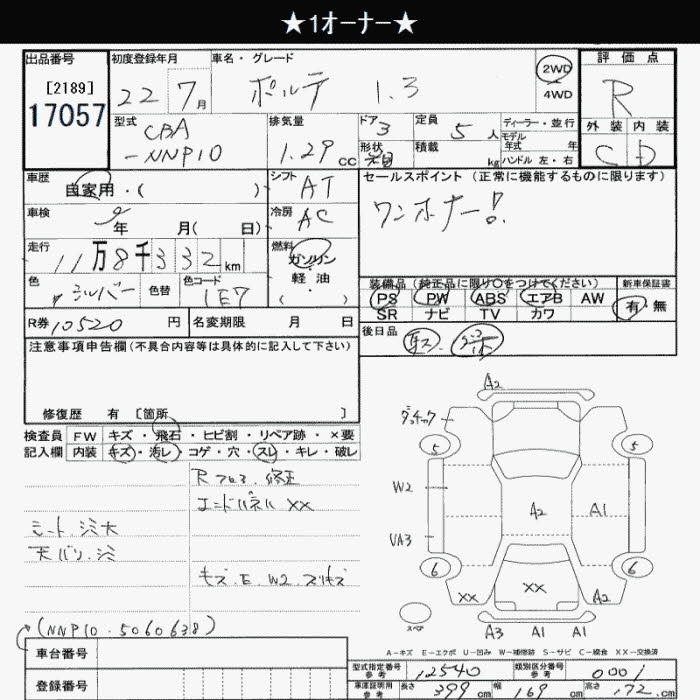 ★1オーナー★
出品番号
[2189]
17057
初度登録年月
22年7月
車名・グレード
ポルテ 1.3
2WD
4WD
評価点
R
外装 内装
C D
型式
CBA
-NNP10
排気量
1.29cc
ドア
3
形状
定員
5人
積載
kg
ディーラー・並行
モデル
年式 年
ハンドル 左・右
車歴
自家用・( )
シフト
AT
車検
年 月( 日)
冷房
AC
走行
11万8千332km
燃料
ガソリン
・
軽油
( )
色
シルバー
色替
色コード
1E7
セールスポイント (正常に機能するものに限ります)
ワンオーナー!
装備品 (純正品に限り○をつけてください)
PS PW ABS エアB AW
SR ナビ TV カワ
新車保証書
有・無
R券 10520円
名変期限 月 日
後日品
注意事項申告欄(不具合内容等は具体的に記入して下さい)
修復歴 有 [箇所 ]
検査員
記入欄
FW キズ・飛石・ヒビ割・リペア跡・×要
内装 キズ・汚レ・コゲ・穴・スレ・キレ・破レ
Rフロア.修正
エンドパネル XX
シート.シミ大
天バリ.シミ
キズ.E.W2.スリキズ
(NNP10-5060638)
車台番号
登録番号
A2
5 5
W2
A2 A1
UA3
6 6
XX XX A2
スペア
A3 A1 A1
A-キズ E-エクボ U-凹み W-補修跡 S-サビ C-腐食 XX-交換済
型式指定番号
参考
12540
類別区分番号
参考
0001
車庫証明用
参考
長さ 399cm 幅 169cm 高さ 172cm